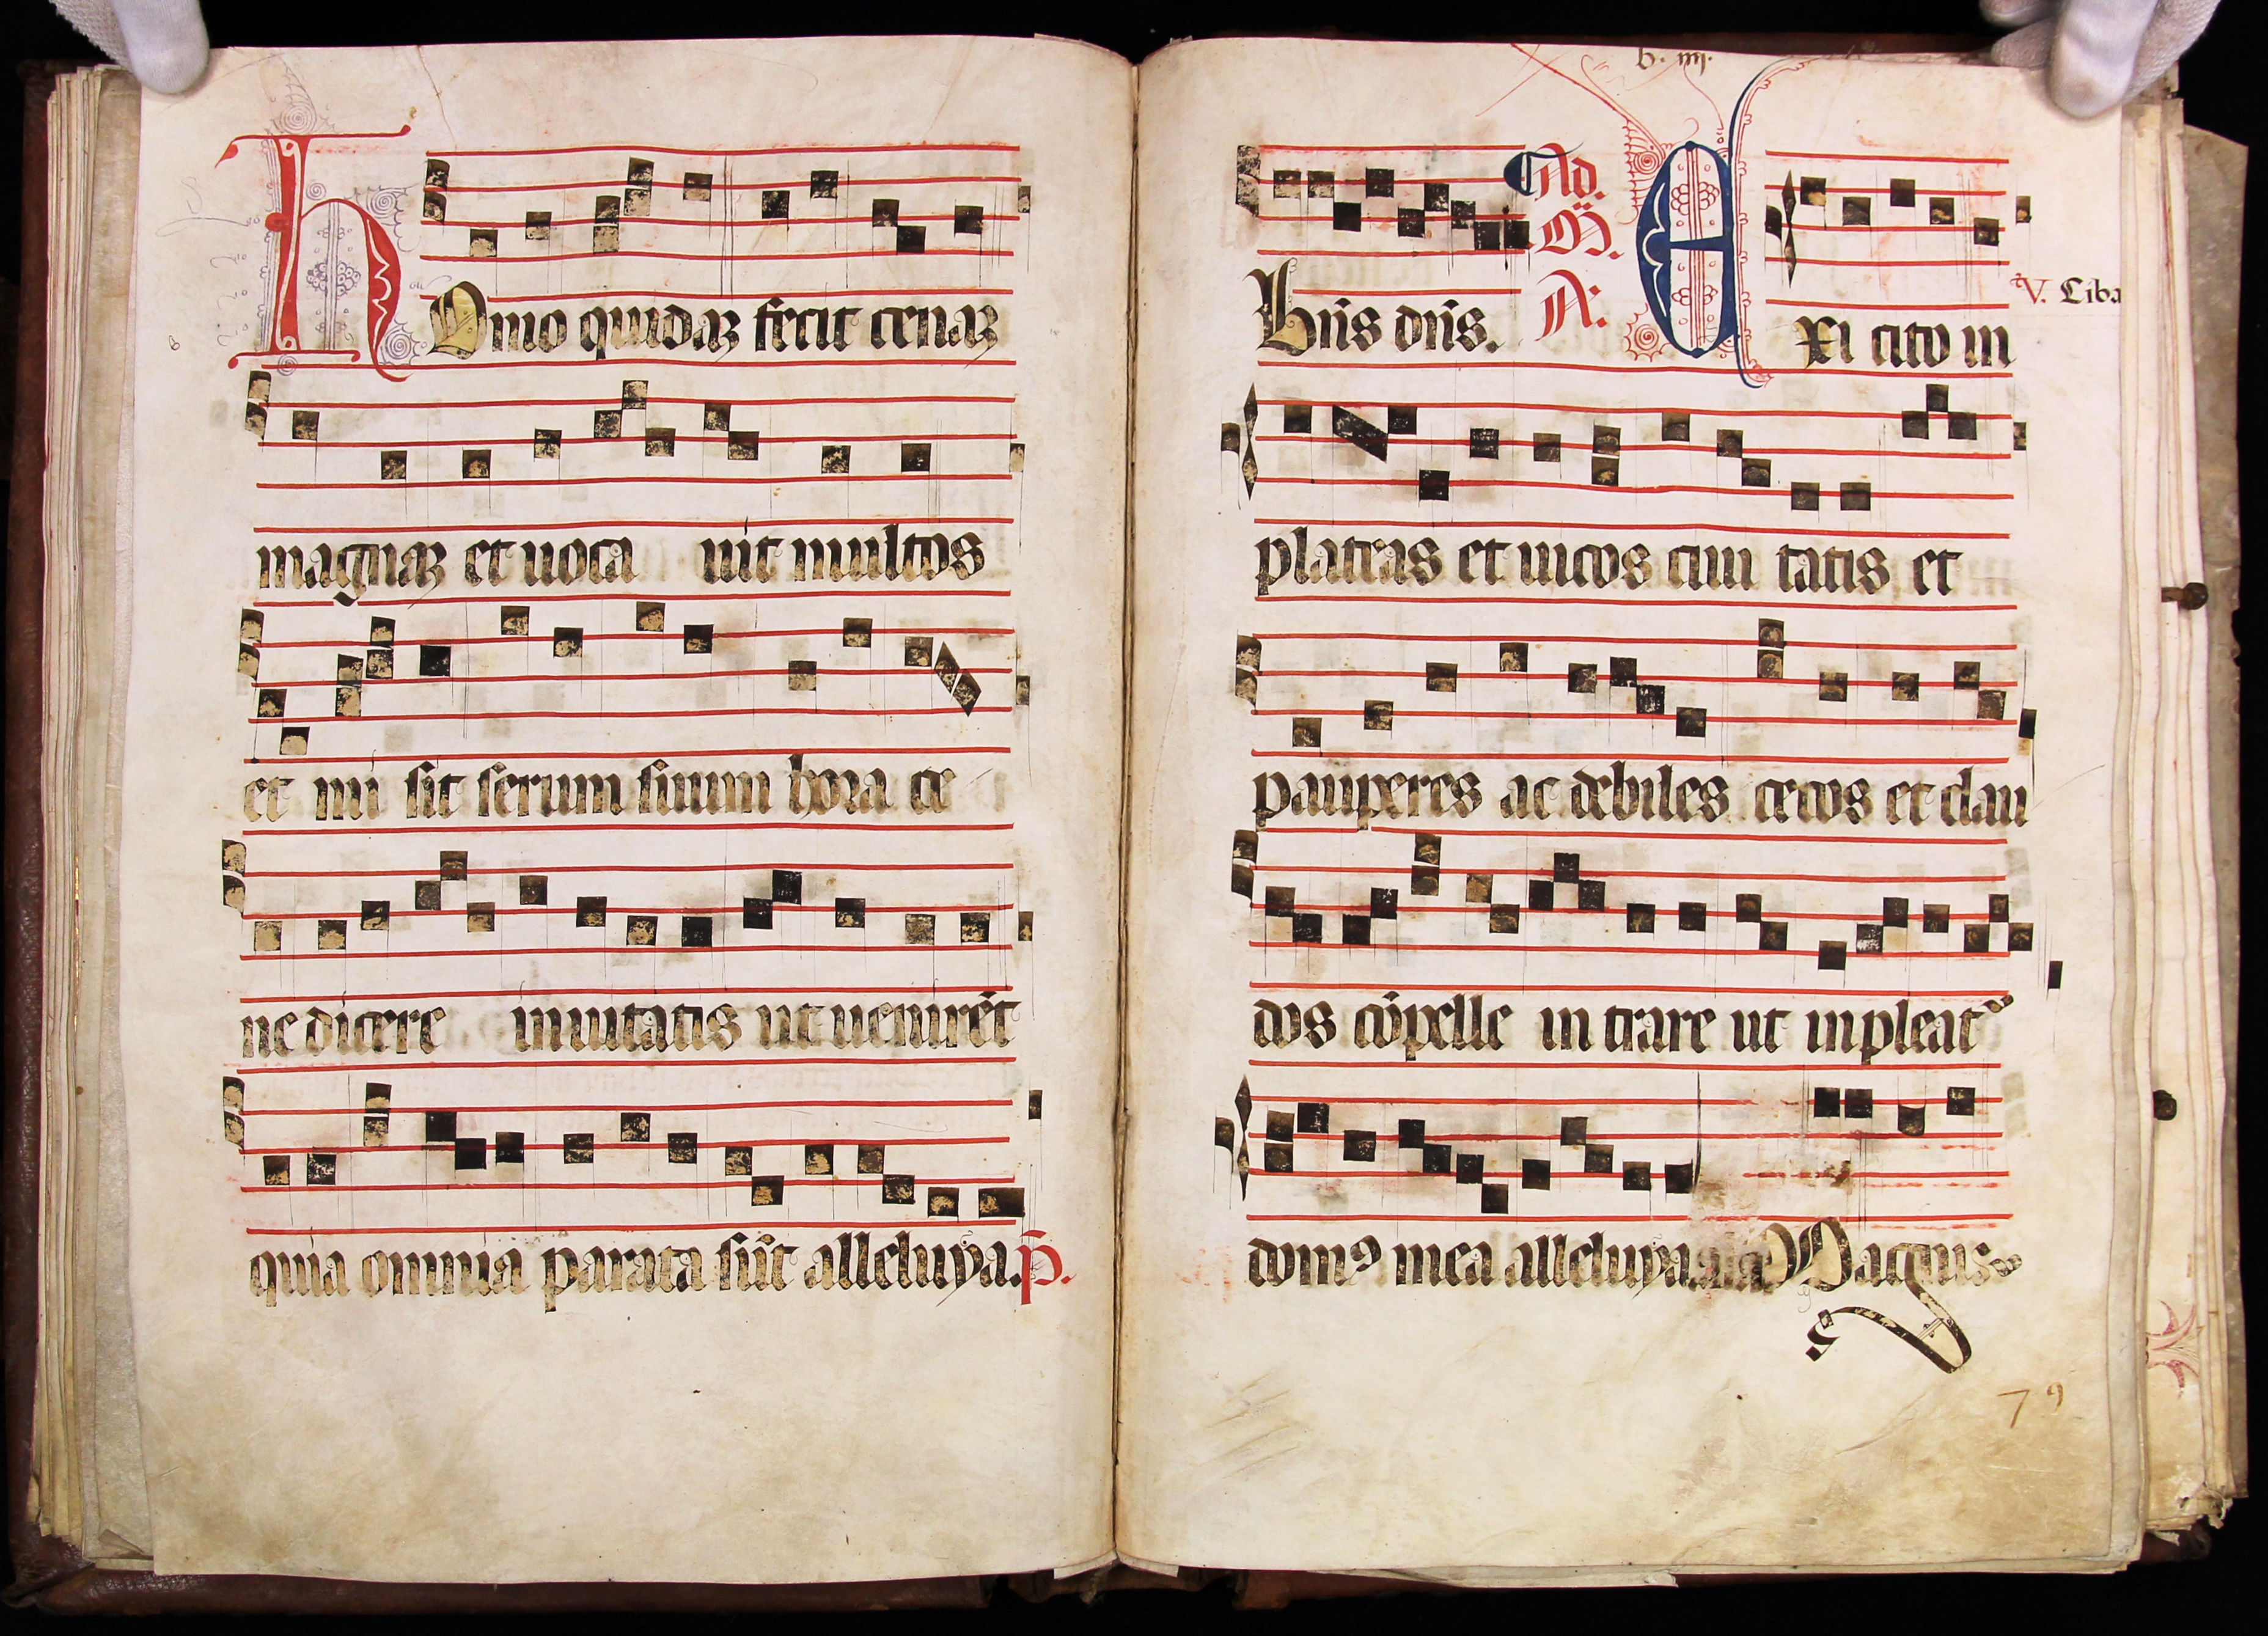 HOmo quidaʒ fecit cenaʒ
magnaʒ et uoca uit multos
et mi sit seruum suum hora ce
ne dicere inuitatis ut uenirēt
quia omnia parata sūt alleluya. p̄.
b. iiij.
hūs dn̄s. Ad. M̄. A: EXi cito in
V. Ciba
plateas et uicos ciui tatis et
pauperes ac debiles cecos et clau
dos cōpelle in trare ut inpleat᷑
domꝯ mea alleluya. Magnus
79